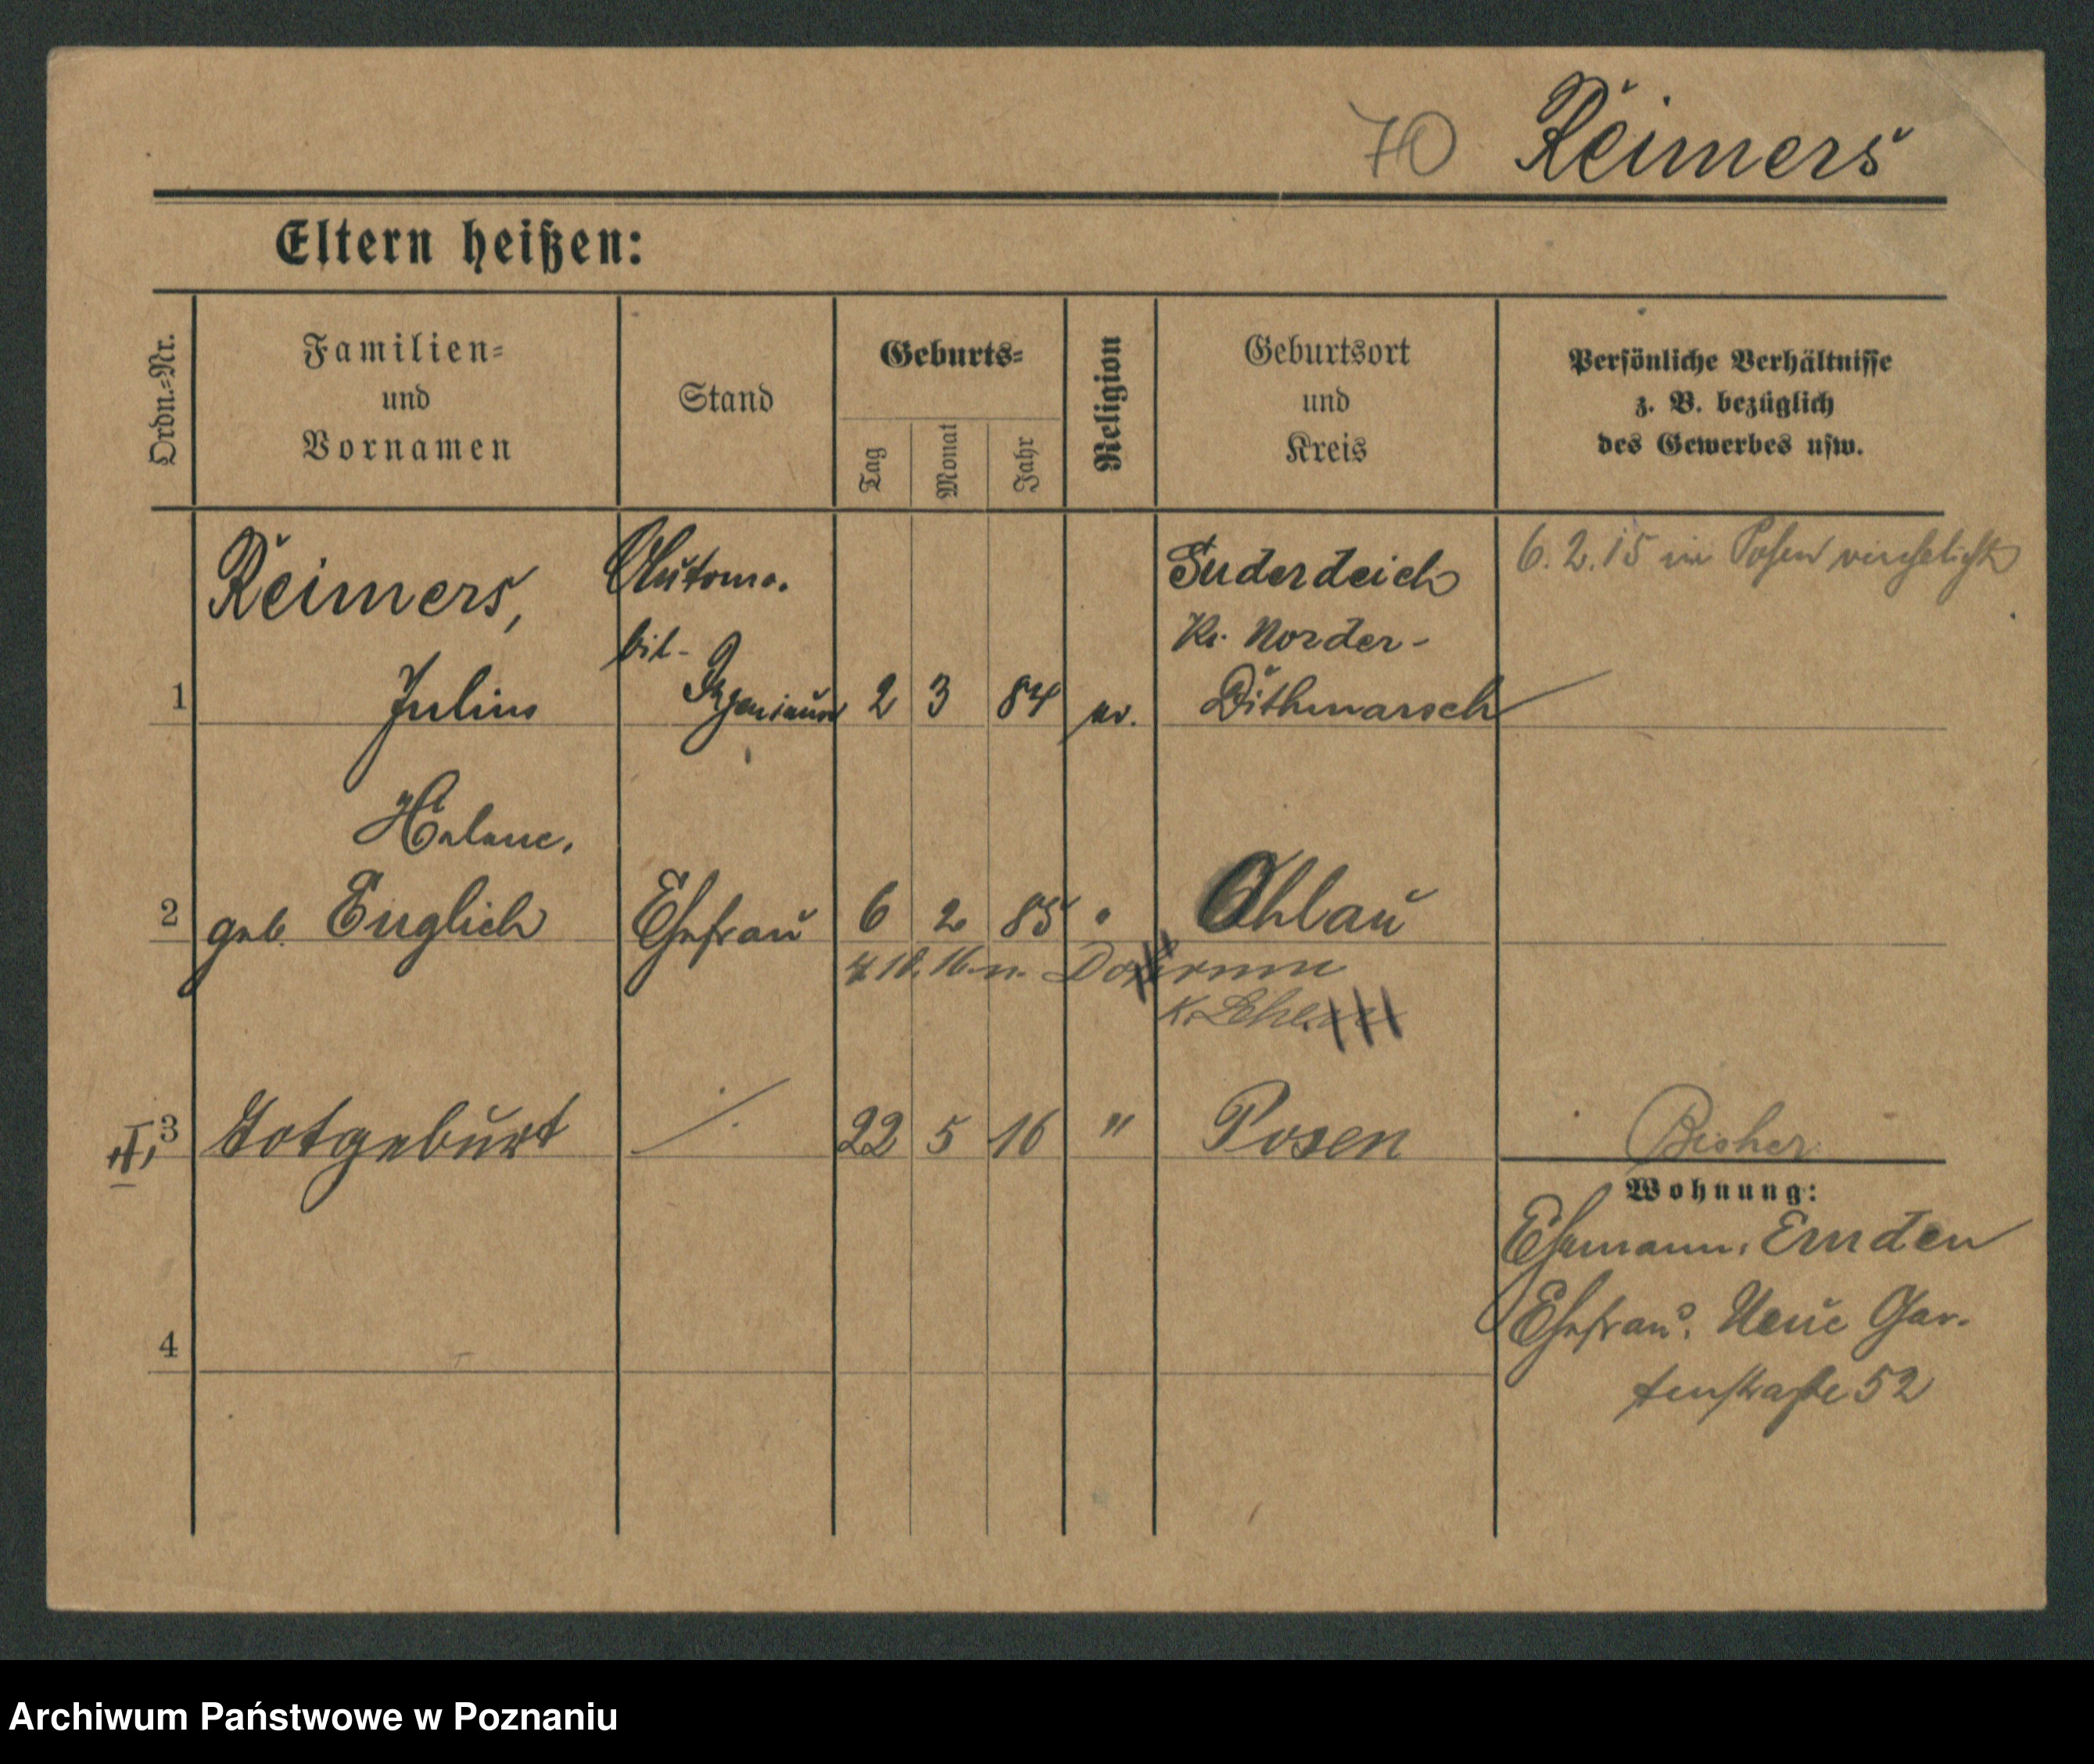 70 Reimers
Eltern heißen:
Ordn.-Nr.
Familien-
und
Vornamen
Stand
Geburts-
Tag
Monat
Jahr
Religion
Geburtsort
und
Kreis
Persönliche Verhältnisse
z. B. bezüglich
des Gewerbes usw.
Reimers,
Automo.
Suderdeich
6. 2. 15 in Posen verehelicht
bil-
Kr. Norder-
1 Julius Ingenieur 2 3 84 ev. Dithmarsch
Helene,
2 geb. Englich Ehefrau 6 2 85 " Ohlau
16. n.
K. Lehe
3 Totgeburt 22 5 16 " Posen
Bisher
Wohnung:
Ehemann, Emden
Ehefrau, Neue Gar-
4
tenstraße 52
Archiwum Państwowe w Poznaniu